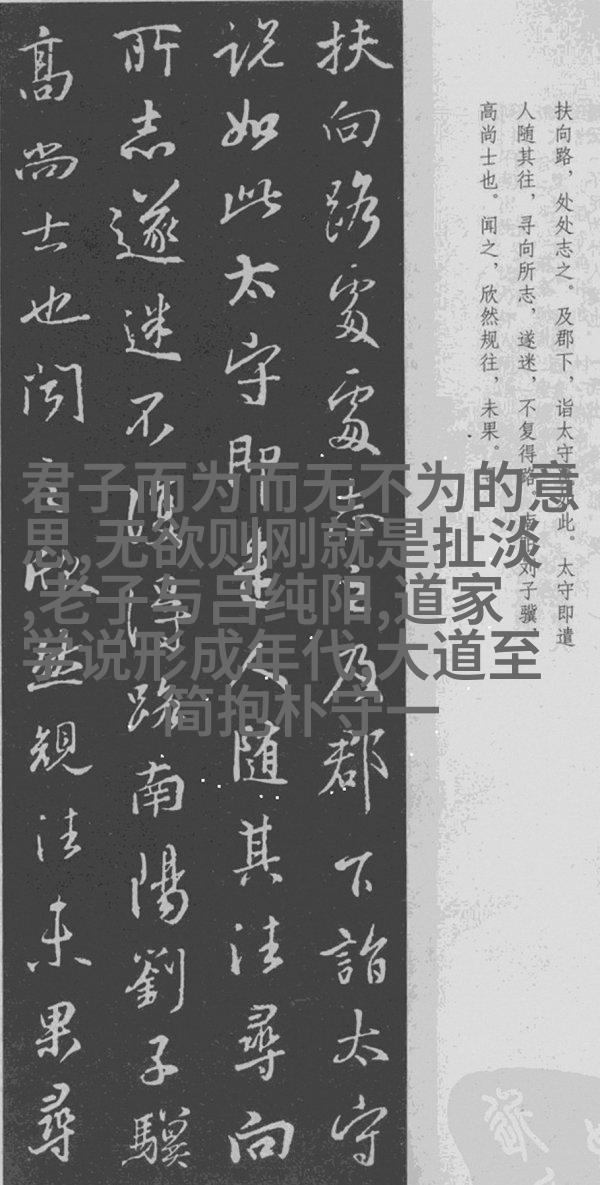 扶向路，处处志之。及郡下，诣太守说如此。太守即遣
人随其往，寻向所志，遂迷，不复得路。南阳刘子骥，
高尚士也。闻之，欣然规往，未果。
扶向路處處志之及郡下詣太守
說如此太守即遣人随其往尋向
所志遂迷不復得路南陽劉子驥
高尚士也聞之欣然規往未果尋
君子而为而无不为的意
思,无欲则刚就是扯淡
,老子与吕纯阳,道家
学说形成年代,大道至
简抱朴守一